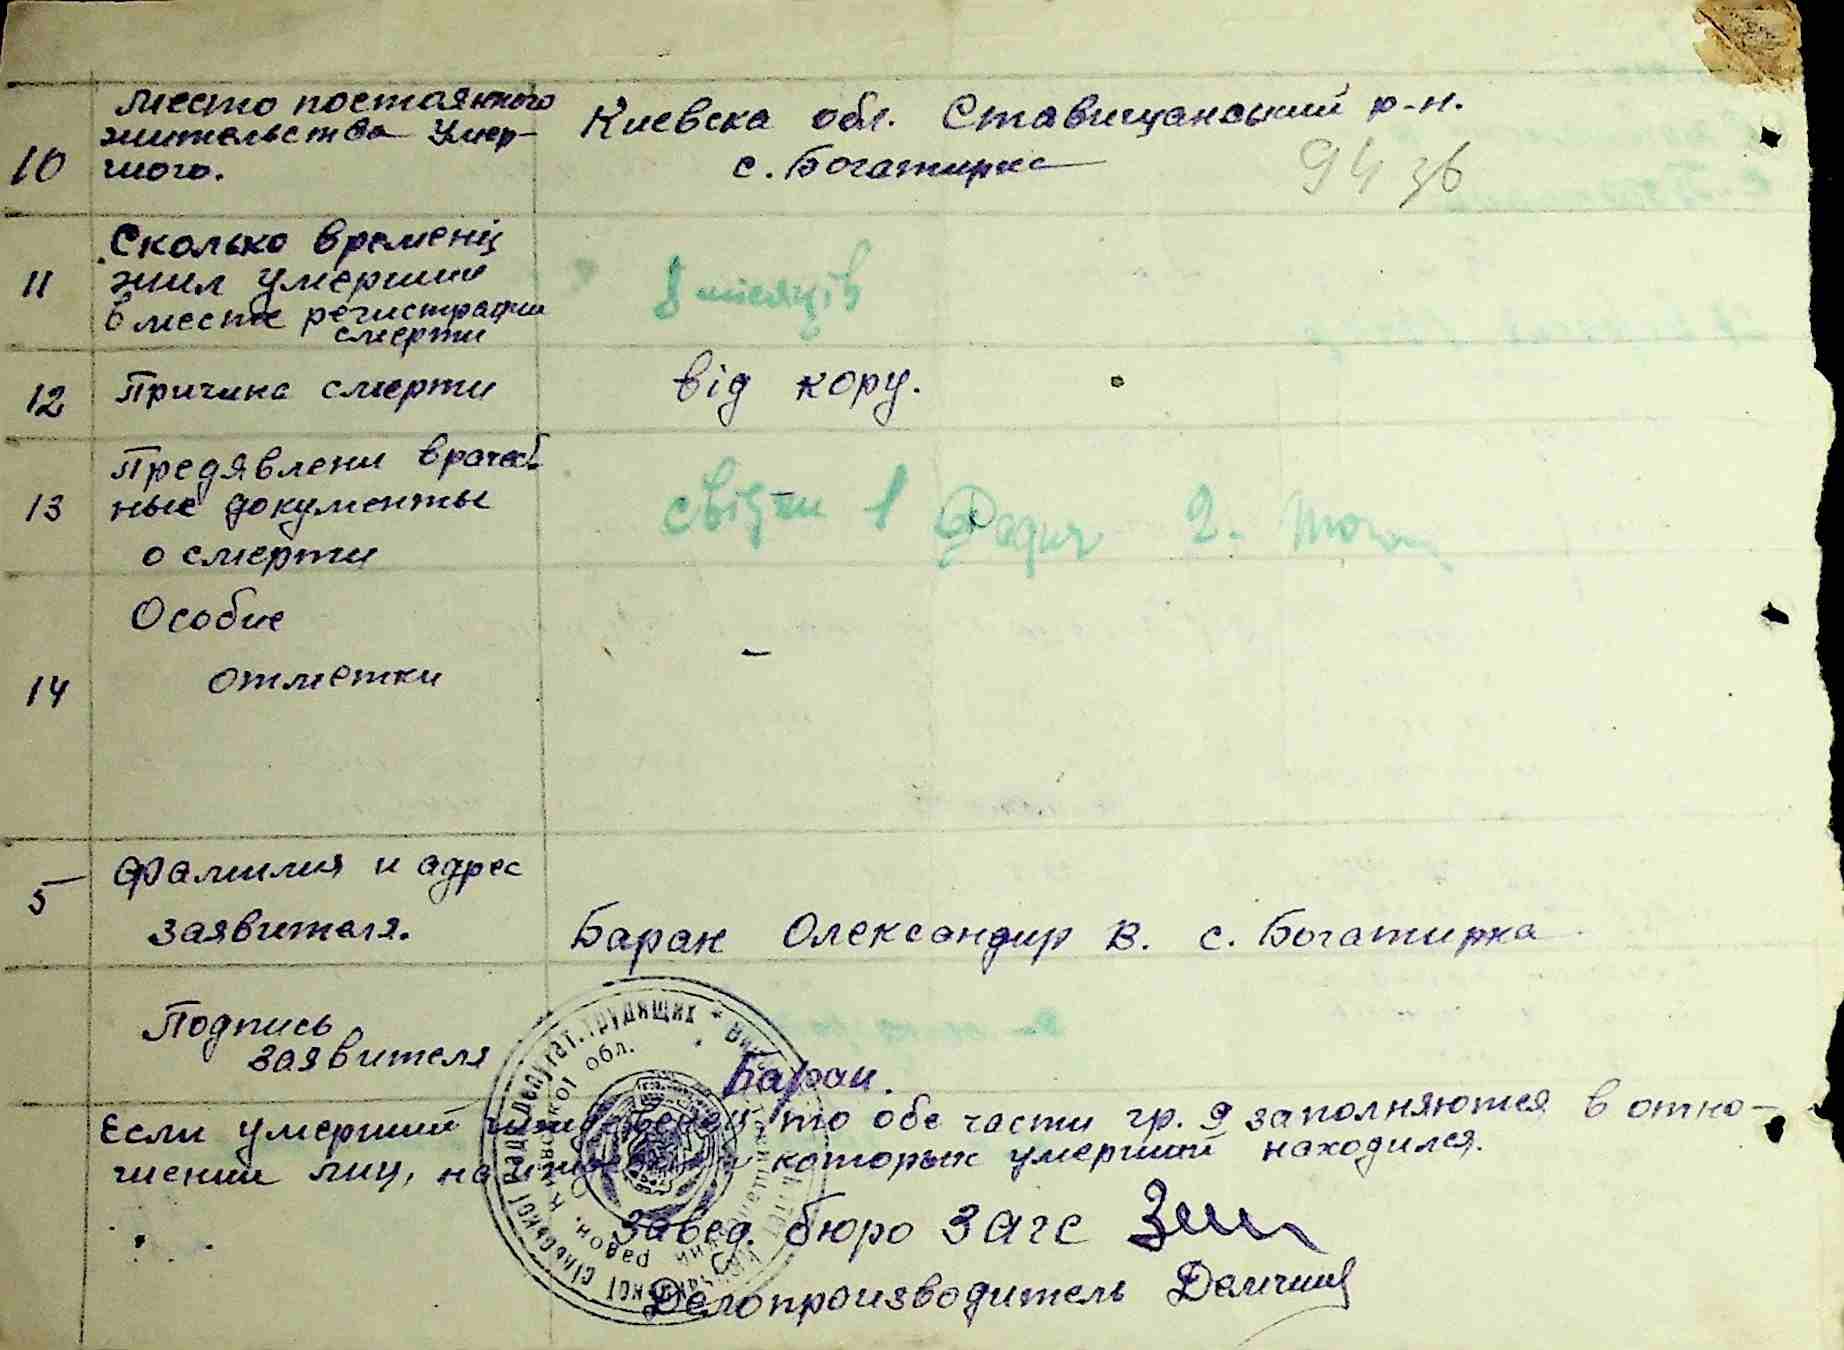 10
Место постаянного
жительства Умер-
шого.
Киевска обл. Ставищанський р-н.
с. Богатирка
94 зв
11
Сколько времени
жил умерший
в месте регистрации
смерти
8 місяців
12
Причина смерти
від кору.
13
Предявлени врачеб
ные документы
о смерти
свідки 1 2.
14
Особие
отметки
-
5
Фамилия и адрес
заявителя.
Баран Олександир В. с. Богатирка
Подпись
заявителя
Баран.
Если умерший то обе части гр. 9 заполняются в отно-
шении лиц, на которых умерший находился.
Завед. бюро ЗАГС
Делопроизводитель
сільської Ради депутат. трудящих
район, Київської обл.